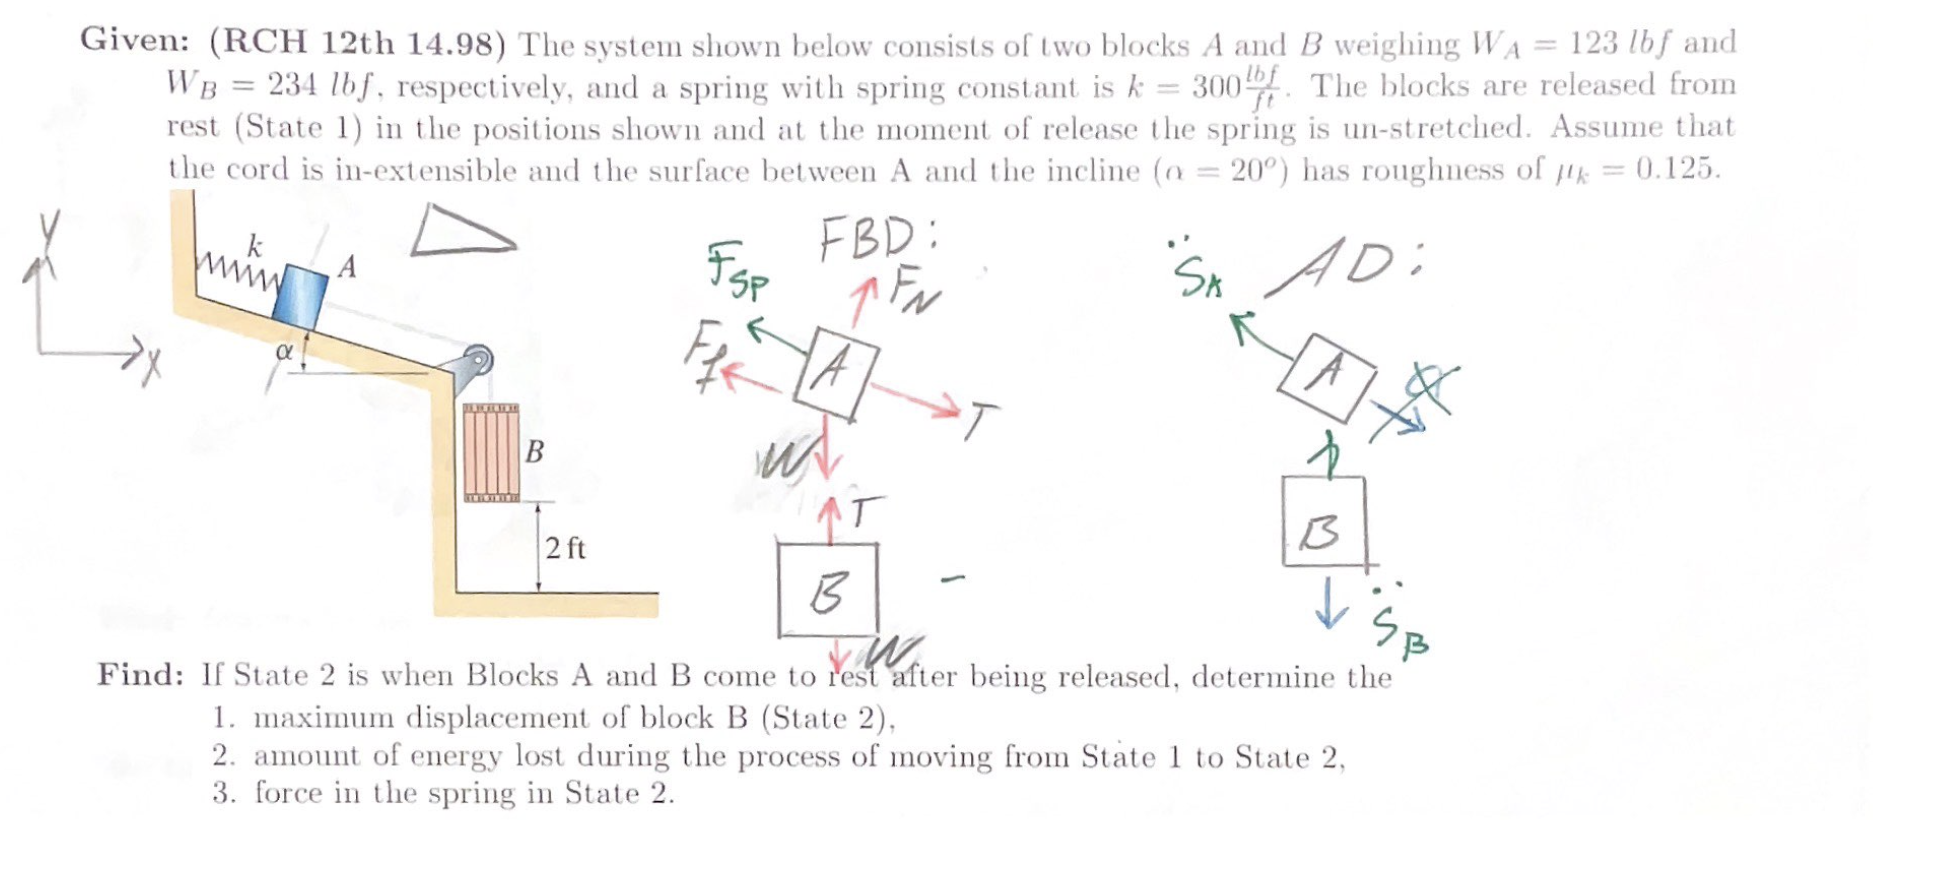 Given: (RCH 12th 14.98) The system shown below consists of two blocks A and B weighing W_A = 123 lbf and
W_B = 234 lbf, respectively, and a spring with spring constant is k = 300 lbf/ft. The blocks are released from
rest (State 1) in the positions shown and at the moment of release the spring is un-stretched. Assume that
the cord is in-extensible and the surface between A and the incline (α = 20°) has roughness of μ_k = 0.125.
Y
X
k
A
α
B
2 ft
FBD:
F_SP
F_N
F_f
A
T
W
T
B
W
AD:
S̈_A
A
B
S̈_B
Find: If State 2 is when Blocks A and B come to rest after being released, determine the
1. maximum displacement of block B (State 2),
2. amount of energy lost during the process of moving from State 1 to State 2,
3. force in the spring in State 2.